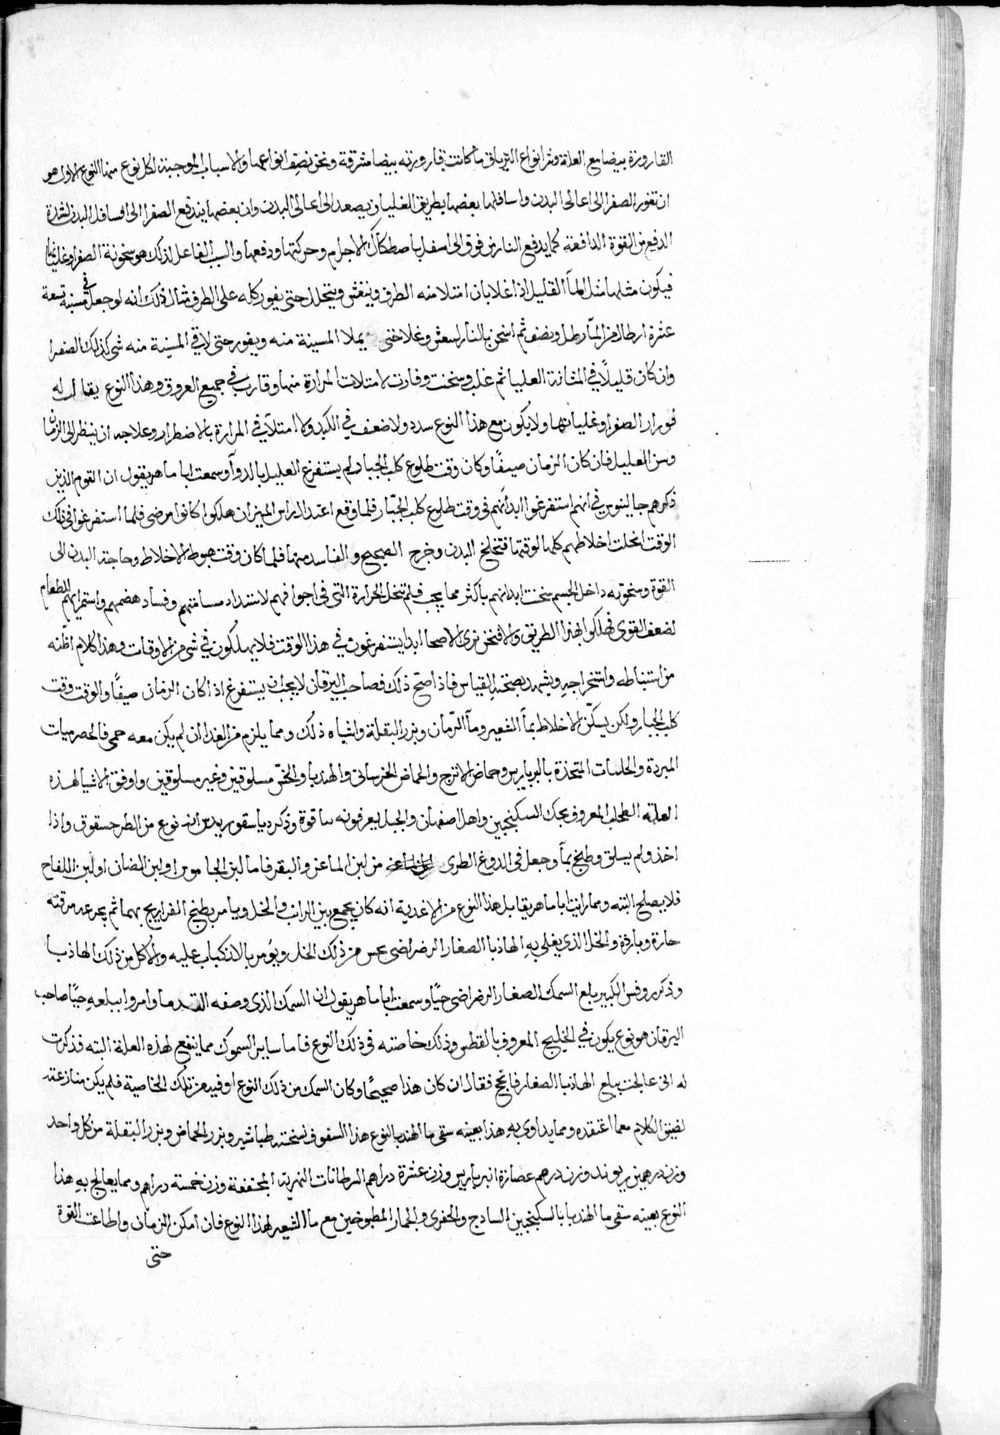 القارورة بيضا مع العلة وشر انواع اليرقان ما كانت قارورته بيضا مشرقة ونحن نصف انواعها والاسباب الموجبة لكل نوع منها النوع الاول هو
ان تفور الصفرا الى اعالى البدن واسافلها بعضها بطريق الغليان يصعد الى اعالى البدن وان بعضها يندفع الصفرا الى اسافل البدن لشدة
الدفع من القوة الدافعة كما يدفع النار من فوق الى اسفل باصطكاك الاجرام وحركتها ودفعها والسبب الفاعل لذلك هو سخونة الصفرا وغليانها
فيكون مثلها مثل الماء القليل اذا غلا بان امتلا منه الظرف وينفش ويتخلخل حتى يفور كله على الظرف مثال ذلك انه لو جعل في مسينة تسعة
عشرة ارطال من الماء رطل ونصف ثم اسخن بالنار لنعش وغلا حتى يملا المسينة منه ويفور حتى لا في المسينة منه شى كذلك الصفرا
وان كان قليلا في المثانة العليا ثم غلب وسخنت وفارت لامتلات المرارة منها وقارب في جميع العروق وهذا النوع يقال له
فوران الصفرا وغليانها ولا يكون مع هذا النوع سدد ولا ضعف في الكبد ولا امتلاء في المرارة بالاضطرار وعلاجه ان ينظر الى الزمان
وسن العليل فان كان الزمان صيفا وكان وقت طلوع كلب الجبار لم يستفرغ العليل بالدواء وسمعت ابا ماهر يقول ان القوم الذين
ذكرهم جالينوس في انهم استفرغوا ابدانهم في وقت طلوع كلب الجبار فلما وقع اعتدال راس الميزان هلكوا كانوا مرضى فلما استفرغوا في ذلك
الوقت انحلت اخلاطهم كلها لوقتها فتخلخل البدن وخرج الصحيح والفاسد منها فلما كان وقت هبوط الاخلاط وحاجة البدن الى
القوة وسخونة داخل الجسم سخنت ابدانهم باكثر مما يجب فلم تتحلل الحرارة التى فى اجوافهم لانسداد مسامهم وفساد هضمهم واستمرايهم للطعام
لضعف القوى فهلكوا بهذا الطريق والا فنحن نرى الاصحا ابدا يستفرغون في هذا الوقت فلا يهلكون في شى من الاوقات وهذا كلام اظنه
من استنباطه واستخراجه ويشهد بصحته القياس فاذا صح ذلك فصاحب اليرقان لا يجب ان يستفرغ اذا كان الزمان صيفا والوقت وقت
كلب الجبار ولكن يسكن الاخلاط بماء الشعير وماء الرمان وبزر البقلة واشباه ذلك ومما يلزم من الغذا ان لم يكن معه حمى فالحصرميات
المبردة والحلمات المتخذة بالبرباريس وحماض الاترج والحماض الخرسانى والهندبا والخس مسلوقين وغير مسلوقين واوفق الاشيا لهذه
العلة الطحلب المعروف بحك السكنجبين واهل اصفهان والجبل يعرفونه ساقوة وذكر دياسقوريدس انه نوع من الطرحسقوق واذا
اخذ ولم يسلق وطبخ بماء وجعل في الدوغ الطرى من لبن الماعز والبقر فاما لبن الجاموس او لبن الضان او لبن اللقاح
فلا يصلح البتة ومما راينا ابا ماهر يقابل هذا النوع من الاغذية انه كان يجمع بين الرايب والخل ويامر بطبخ الفراريج بهما ثم يجرعه مرقته
حارة وباردة والخل الذى يغلى به الهاذبا الصغار الرضراضى يحس من ذلك الخل ويؤمر بالانكباب عليه والاكل من ذلك الهاذبا
وذكر روفس الكبير بلع السمك الصغار الرضراضى حيا وسمعت ابا ماهر يقول ان السمك الذى وصفه القدما وامروا ببلعه حيا صاحب
اليرقان هو نوع يكون في الخليج المعروف بالقطس وذلك خاصته فى ذلك النوع فاما ساير السموك مما ينفع لهذه العلة البتة فذكرت
له انى عالجت ببلع الهاذبا الصغار فانجح فقال ان كان هذا صحيحا وكان السمك من ذلك النوع او فيه من تلك الخاصية فلم يكن منازعته
لضيق الكلام معما اعتقده ومما يداوى به هذا بعينه سقى ما الهندبا لنوع هذا السفوف نسخته طباشير وبزر الحماض وبزر البقلة من كل واحد
وزن درهمين ريوند وزن درهم عصارة انبرباريس وزن عشرة دراهم السرطانات النهرية المجففة وزن خمسة دراهم ومما يعالج به هذا
النوع بعينه سقى ما الهندبا بالسكنجبين الساذج والجفرى والجمار المطبوخين مع ما الشعير لهذا النوع فان امكن الزمان واطاعت القوة
حتى